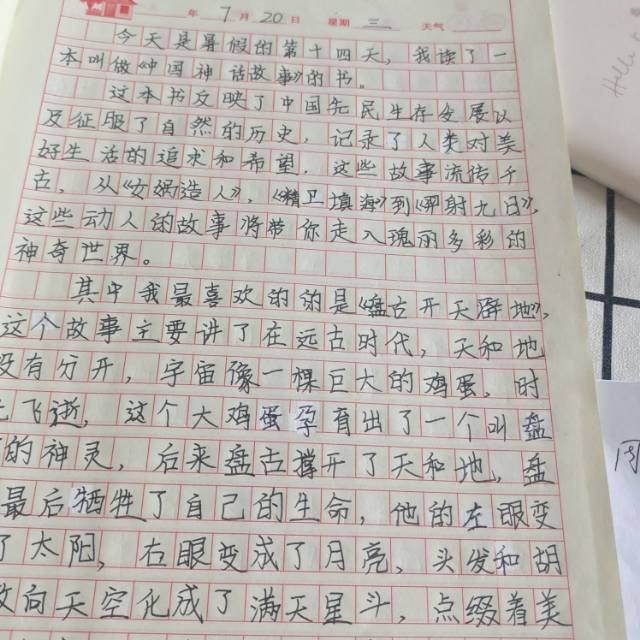 年 7 月 20 日 星期 三 天气
今天是暑假的第十四天，我读了一
本叫做《中国神话故事》的书。
这本书反映了中国先民生存发展以
及征服了自然的历史，记录了人类对美
好生活的追求和希望，这些故事流传千
古，从《女娲造人》，《精卫填海》到《羿射九日》，
这些动人的故事将带你走入瑰丽多彩的
神奇世界。
其中我最喜欢的的是《盘古开天辟地》，
这个故事主要讲了在远古时代，天和地
没有分开，宇宙像一棵巨大的鸡蛋，时
飞逝，这个大鸡蛋孕育出了一个叫盘
的神灵，后来盘古撑开了天和地，盘
最后牺牲了自己的生命，他的左眼变
了太阳，右眼变成了月亮，头发和胡
向天空化成了满天星斗，点缀着美
Hello